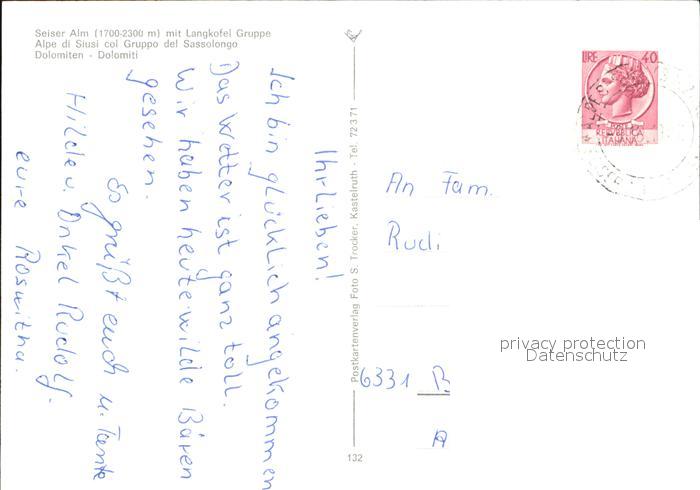 Seiser Alm (1700-2300 m) mit Langkofel Gruppe
Alpe di Siusi col Gruppo del Sassolongo
Dolomiten - Dolomiti
Ihr Lieben!
Ich bin glücklich angekommen
Das Wetter ist ganz toll.
Wir haben heute wilde Bären
gesehen.
So grüßt euch u. Tante
Hilde u. Onkel Rudolf.
eure Roswitha.
Postkartenverlag Foto S. Trocker, Kastelruth - Tel. 72371
132
LIRE 40
REPUBBLICA
ITALIANA
An Fam.
Rudi
6331 B
A
privacy protection
Datenschutz